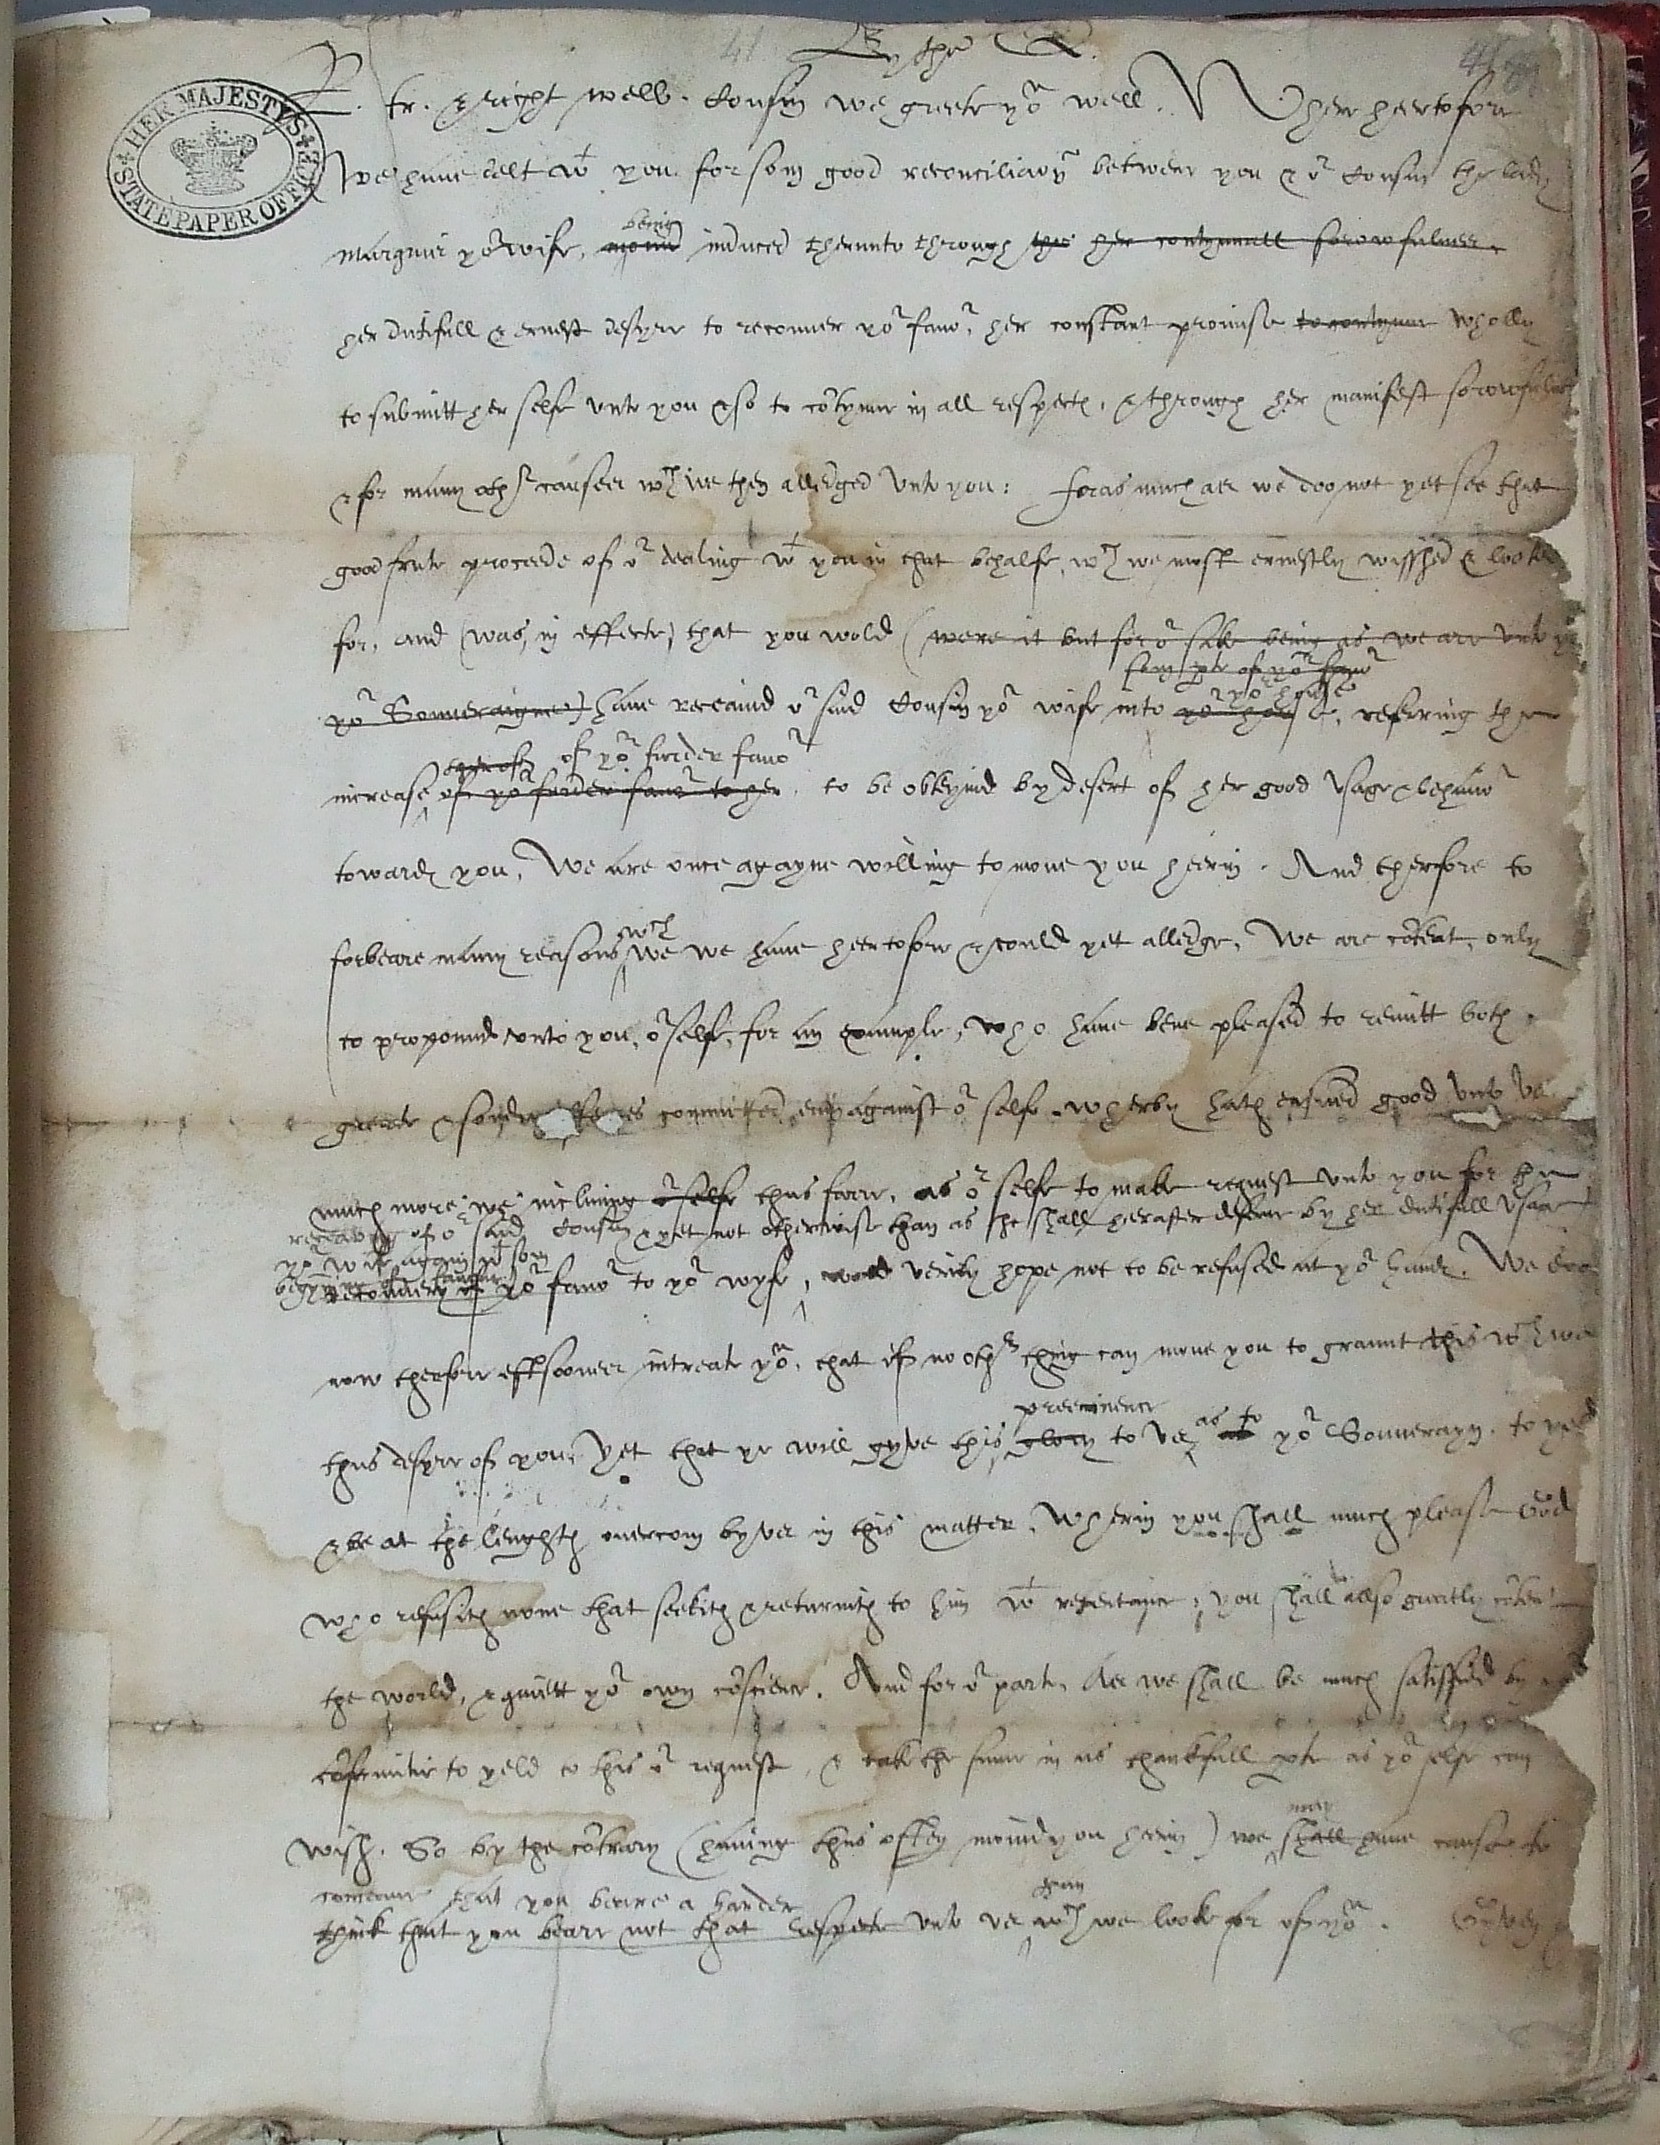 41
By the Q.
HER MAJESTY'S STATE PAPER OFFICE
R. tr. & right welb. Cousin we greete yor well. Wher heertofore
we haue delt wt you for som good reconciliacõn betwene you & or Cousin the lady
margaret yor wife, moued being induced therunto through the her contynuall sorowfulnes,
her dutifull & ernest desyre to recouuer yor favor, her constant promise to contynue wholly
to submitt her self vnto you & so to cõtynue in all respects, & through her manifest sorowfulnes
& for many othr causes wch we then alledged vnto you: forasmuch as we doo not yet see that
good frute procede of or dealing wt you in that behalfe, wch we most ernestly wisshed & looke
for, and (was, in effecte,) that you wold (were it but for or sake being as we are vnto you
som pte of yor favor
yor Souueraigne) haue receaued or said Cousin yor wife into yor house & yor house, referring the
of yor furder favor
increase of yor furder favor to her, to be obteyned by desert of her good vsage & behauior
towards you, We are once agayne willing to moue you heerin. And therfore to
wch
forbeare many reasons we we haue heertofore & could yet alledge, We are cõtent, only
to propound vnto you, or self, for an example, who haue bene pleased to remitt both
greate & sondry offences committed euen against or self. wherby hath ensued good vnto vs
much more: we inclining or selfe thus farre, as or self to make request vnto you for the
receaving of or said Cousin & yet not otherwise than as she shall herafter deserue by her dutifull vsage
yor wife again wt som
recouuery of yor favor to yor wyfe, wold verily hope not to be refused at yor hands. We doo
now therfore eftsoones intreate yor, that if no othr thing can moue you to graunt this wch we
preeminence as to
thus desyre of you, Yet that ye will gyve this glory to vs as yor Souuerayn, to yeld
& be at the lenghth ouercom by vs in this matter, Wherin you shall much please God
who refusith none that seekith & returnith to him wt repentance, you shall allso greatly cõtent
the world, & quiett yor own cõscience. And for or parte, As we shall be much satisfied by
cõformitie to yeld to this or request, & take the same in as thankfull pte as yor self can
may
wish. So by the cõtrary (hauing thus often moued you heerin) we shall haue cause to
conceaue that you beare a harder than
think that you beare not that respecte vnto vs wch we look for of yor. Gyven